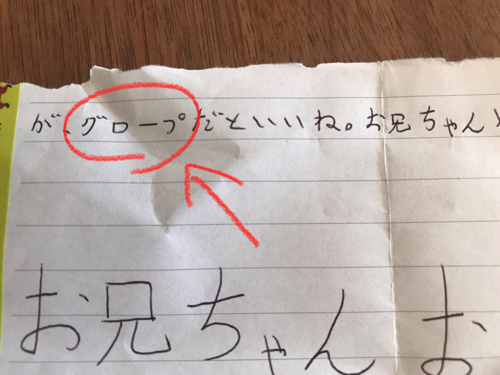 が、グロープだといいね。お兄ちゃん
お兄ちゃん お